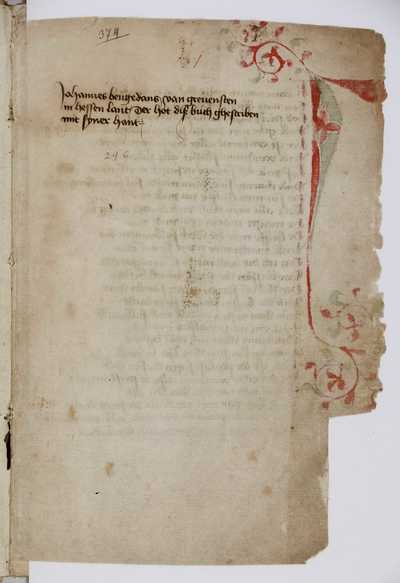 374
Johannes bengedans van grevensten
in hessen lant Der hot diß buch ghescriben
mit syner hant
246